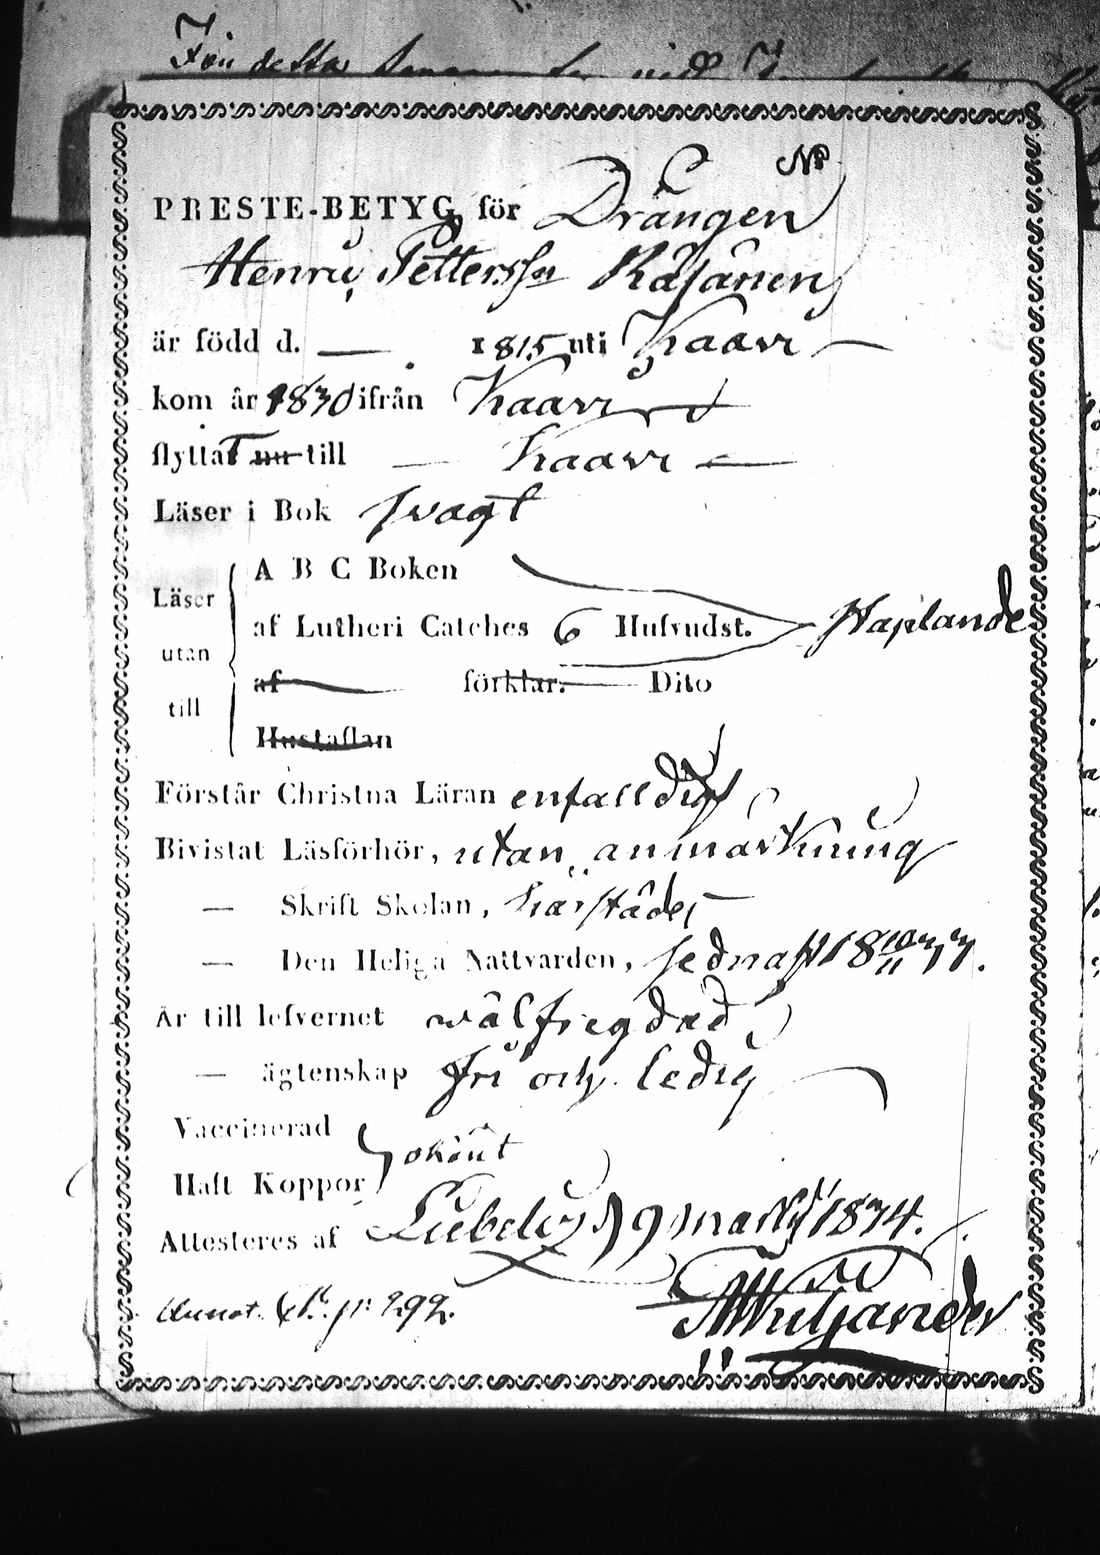 För detta
No
PRESTE-BETYG för Drängen
Henric Pettersson Räsänen
är född d. — 1815 uti Kaavi —
kom år 1830 ifrån Kaavi
flyttat nu till — Kaavi —
Läser i Bok svagt
Läser utan till
A B C Boken
af Lutheri Catches 6 Hufvudst. Haplande
af förklar: Dito
Hustaflan
Förstår Christna Läran enfalldigt
Bivistat Läsförhör, utan anmärkning
— Skrift Skolan, härstädes
— Den Heliga Nattvarden, sednast 18 10/11 33.
Är till lefvernet wälfregdad
— ägtenskap fri och ledig
Vaccinerad
Haft Koppor okänt
Attesteres af Libelitz d 9 Martii 1834.
Annot. p: 292.